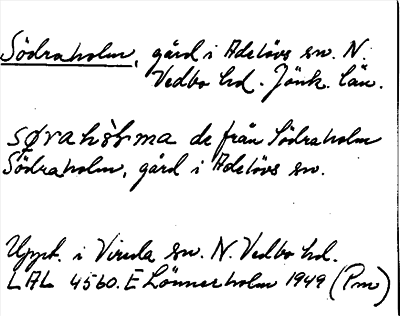 Södraholm, gård i Adelövs sn. N.
Vedbo hd. Jönk. län.
søraհòlma de från Södraholm
Södraholm, gård i Adelövs sn.
Uppt. i Vireda sn. N. Vedbo hd.
LAL 4560. E Lönnerholm 1949 (Pm)